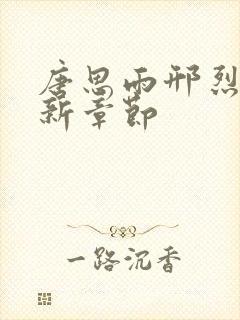 唐思雨邢烈
新章节
一路沉香